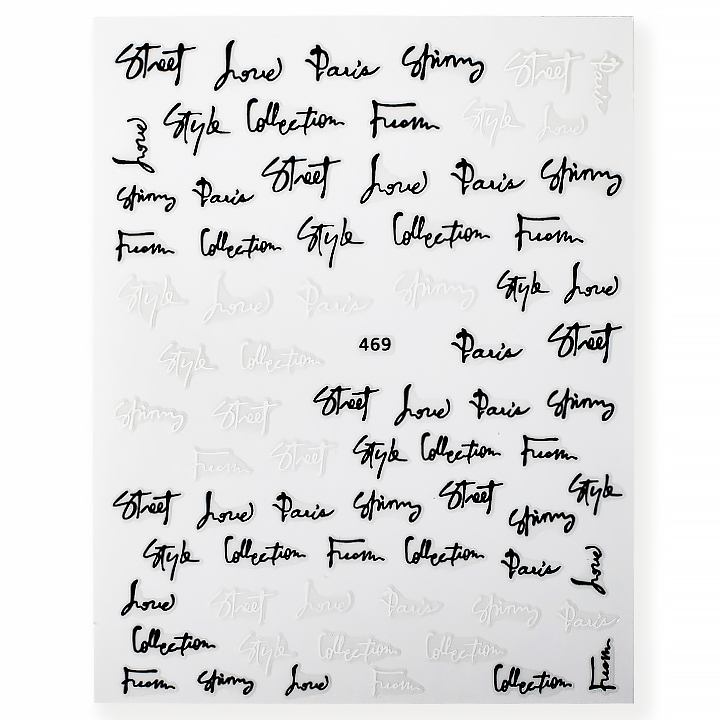 Street Love Paris Spinny Street Paris
Love Style Collection From Style Love
Spinny Paris Street Love Paris Spinny
From Collection Style Collection From
Style Love Paris Spinny Style Love
Style Collection 469 Paris Street
Spinny Street Street Love Paris Spinny
From Street Style Collection From
Street Love Paris Spinny Street Spinny Style
Style Collection From Collection Paris Love
Love Street Love Paris Spinny Paris
Collection Style Collection Collection
From Spinny Love From Collection From